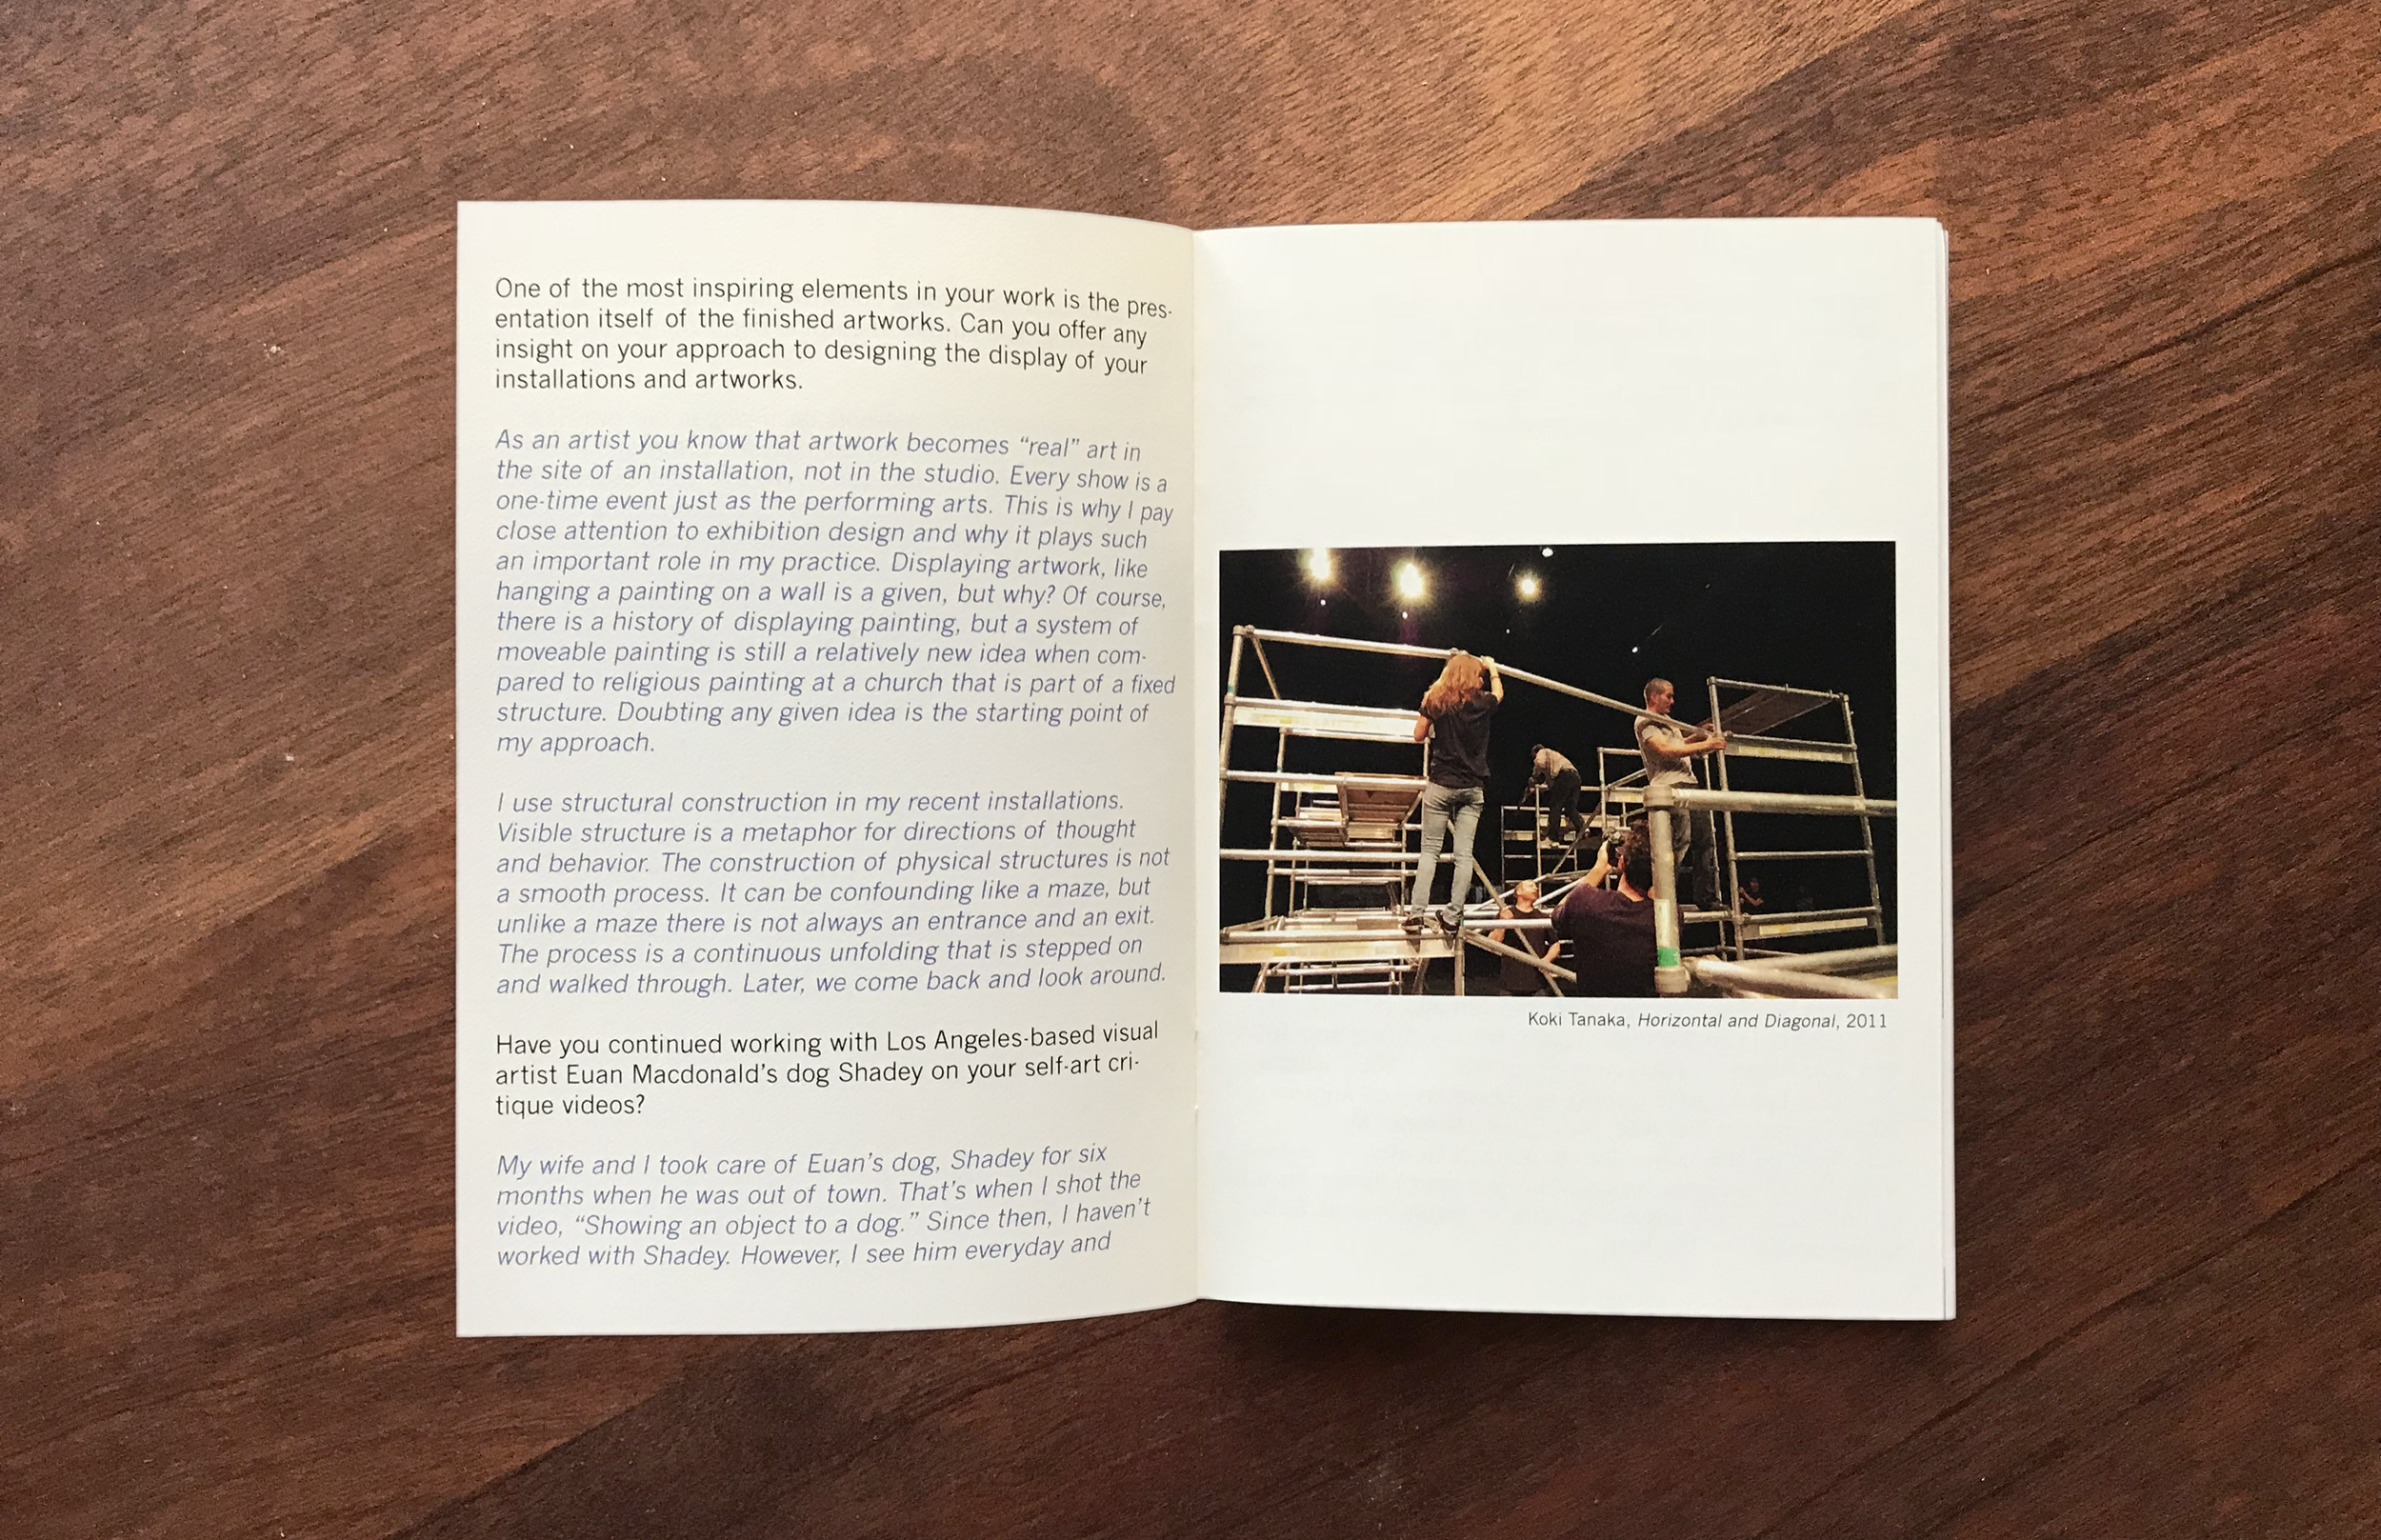 One of the most inspiring elements in your work is the pres-
entation itself of the finished artworks. Can you offer any
insight on your approach to designing the display of your
installations and artworks.
As an artist you know that artwork becomes “real” art in
the site of an installation, not in the studio. Every show is a
one-time event just as the performing arts. This is why I pay
close attention to exhibition design and why it plays such
an important role in my practice. Displaying artwork, like
hanging a painting on a wall is a given, but why? Of course,
there is a history of displaying painting, but a system of
moveable painting is still a relatively new idea when com-
pared to religious painting at a church that is part of a fixed
structure. Doubting any given idea is the starting point of
my approach.
I use structural construction in my recent installations.
Visible structure is a metaphor for directions of thought
and behavior. The construction of physical structures is not
a smooth process. It can be confounding like a maze, but
unlike a maze there is not always an entrance and an exit.
The process is a continuous unfolding that is stepped on
and walked through. Later, we come back and look around.
Have you continued working with Los Angeles-based visual
artist Euan Macdonald’s dog Shadey on your self-art cri-
tique videos?
My wife and I took care of Euan’s dog, Shadey for six
months when he was out of town. That’s when I shot the
video, “Showing an object to a dog.” Since then, I haven’t
worked with Shadey. However, I see him everyday and
Koki Tanaka, Horizontal and Diagonal, 2011